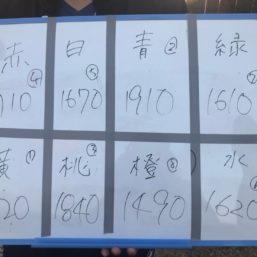 赤 白 青② 緑
④ ⑤
1670 1910 1610
黄① 桃② 橙③ 水
1840 1490 1620